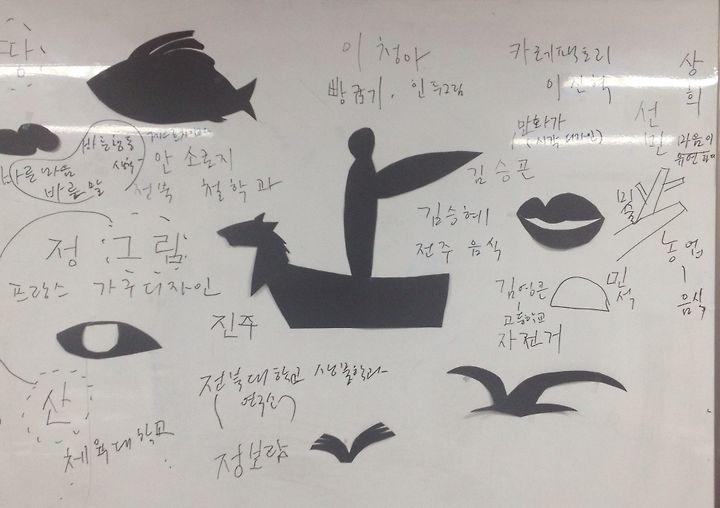 땅
이 청아
빵굽기, 인두그림
카레팩토리
이신혁
만화가
(시각디자인)
상희
선민
마음이
바른행동
생활
바른마음
바를 말
안 소로지
전북 철학과
김승곤
김승혜
전주 음식
미술
농업
음식
정 그림
프랑스 가구디자인
김영근
고등학교
자전거
민석
진주
전북대학교 생물학과
(연구소)
정보람
산
체육대학교